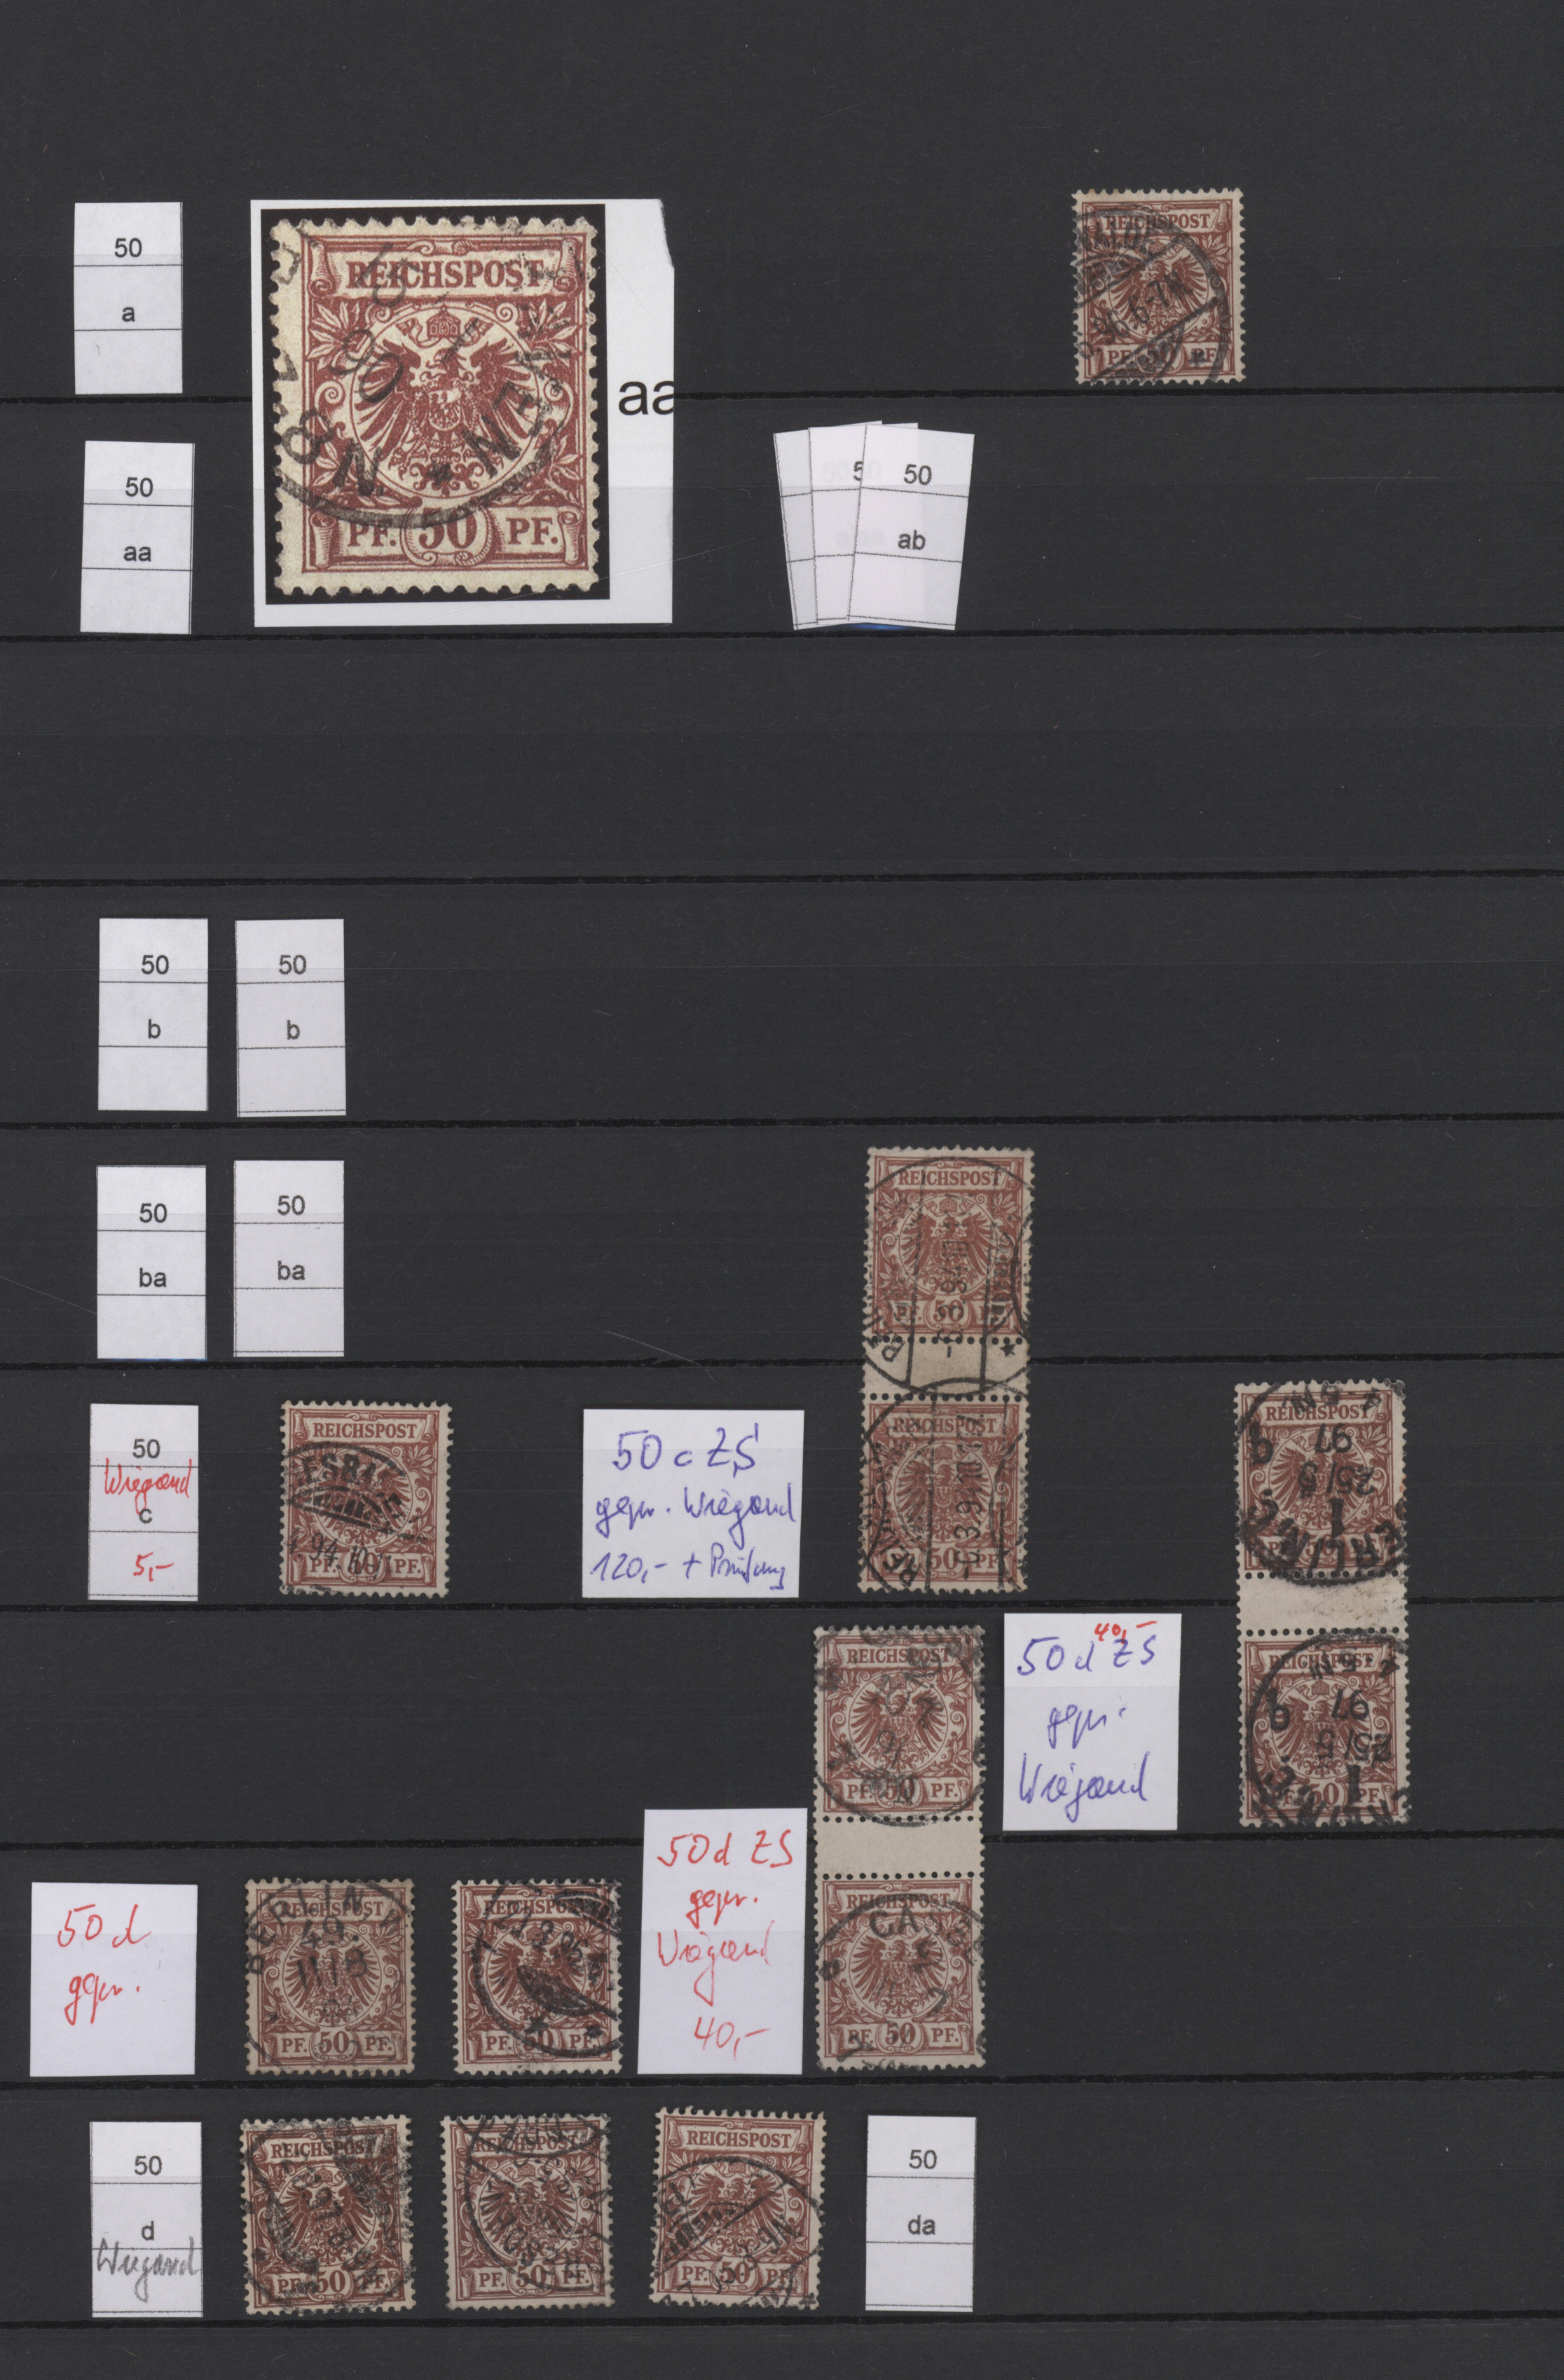 50
a
REICHSPOST
90
N.8
PF. 50 PF.
aa
REICHSPOST
PF. 50 PF.
50
aa
50
ab
50
b
50
b
50
ba
50
ba
REICHSPOST
PF. 50
REICHSPOST
50 PF.
50
Wiegand
c
5,-
REICHSPOST
94
PF.
PF.
50 c ZS
gepr. Wiegand
120,- + Prüfung
REICHSPOST
97
25/5
REICHSPOST
4-5N.
97
25/5
50 PF.
REICHSPOST
PF. 50 PF.
REICHSPOST
PF. 50 PF.
40,-
50 d ZS
gepr.
Wiegand
50 d ZS
gepr.
Wiegand
40,-
50 d
gepr.
BERLIN
REICHSPOST
49.
PF. 50 PF.
REICHSPOST
PF. 50 PF.
50
d
Wiegand
REICHSPOST
PF. 50 PF.
REICHSPOST
PF. 50 PF.
REICHSPOST
PF. 50 PF.
50
da